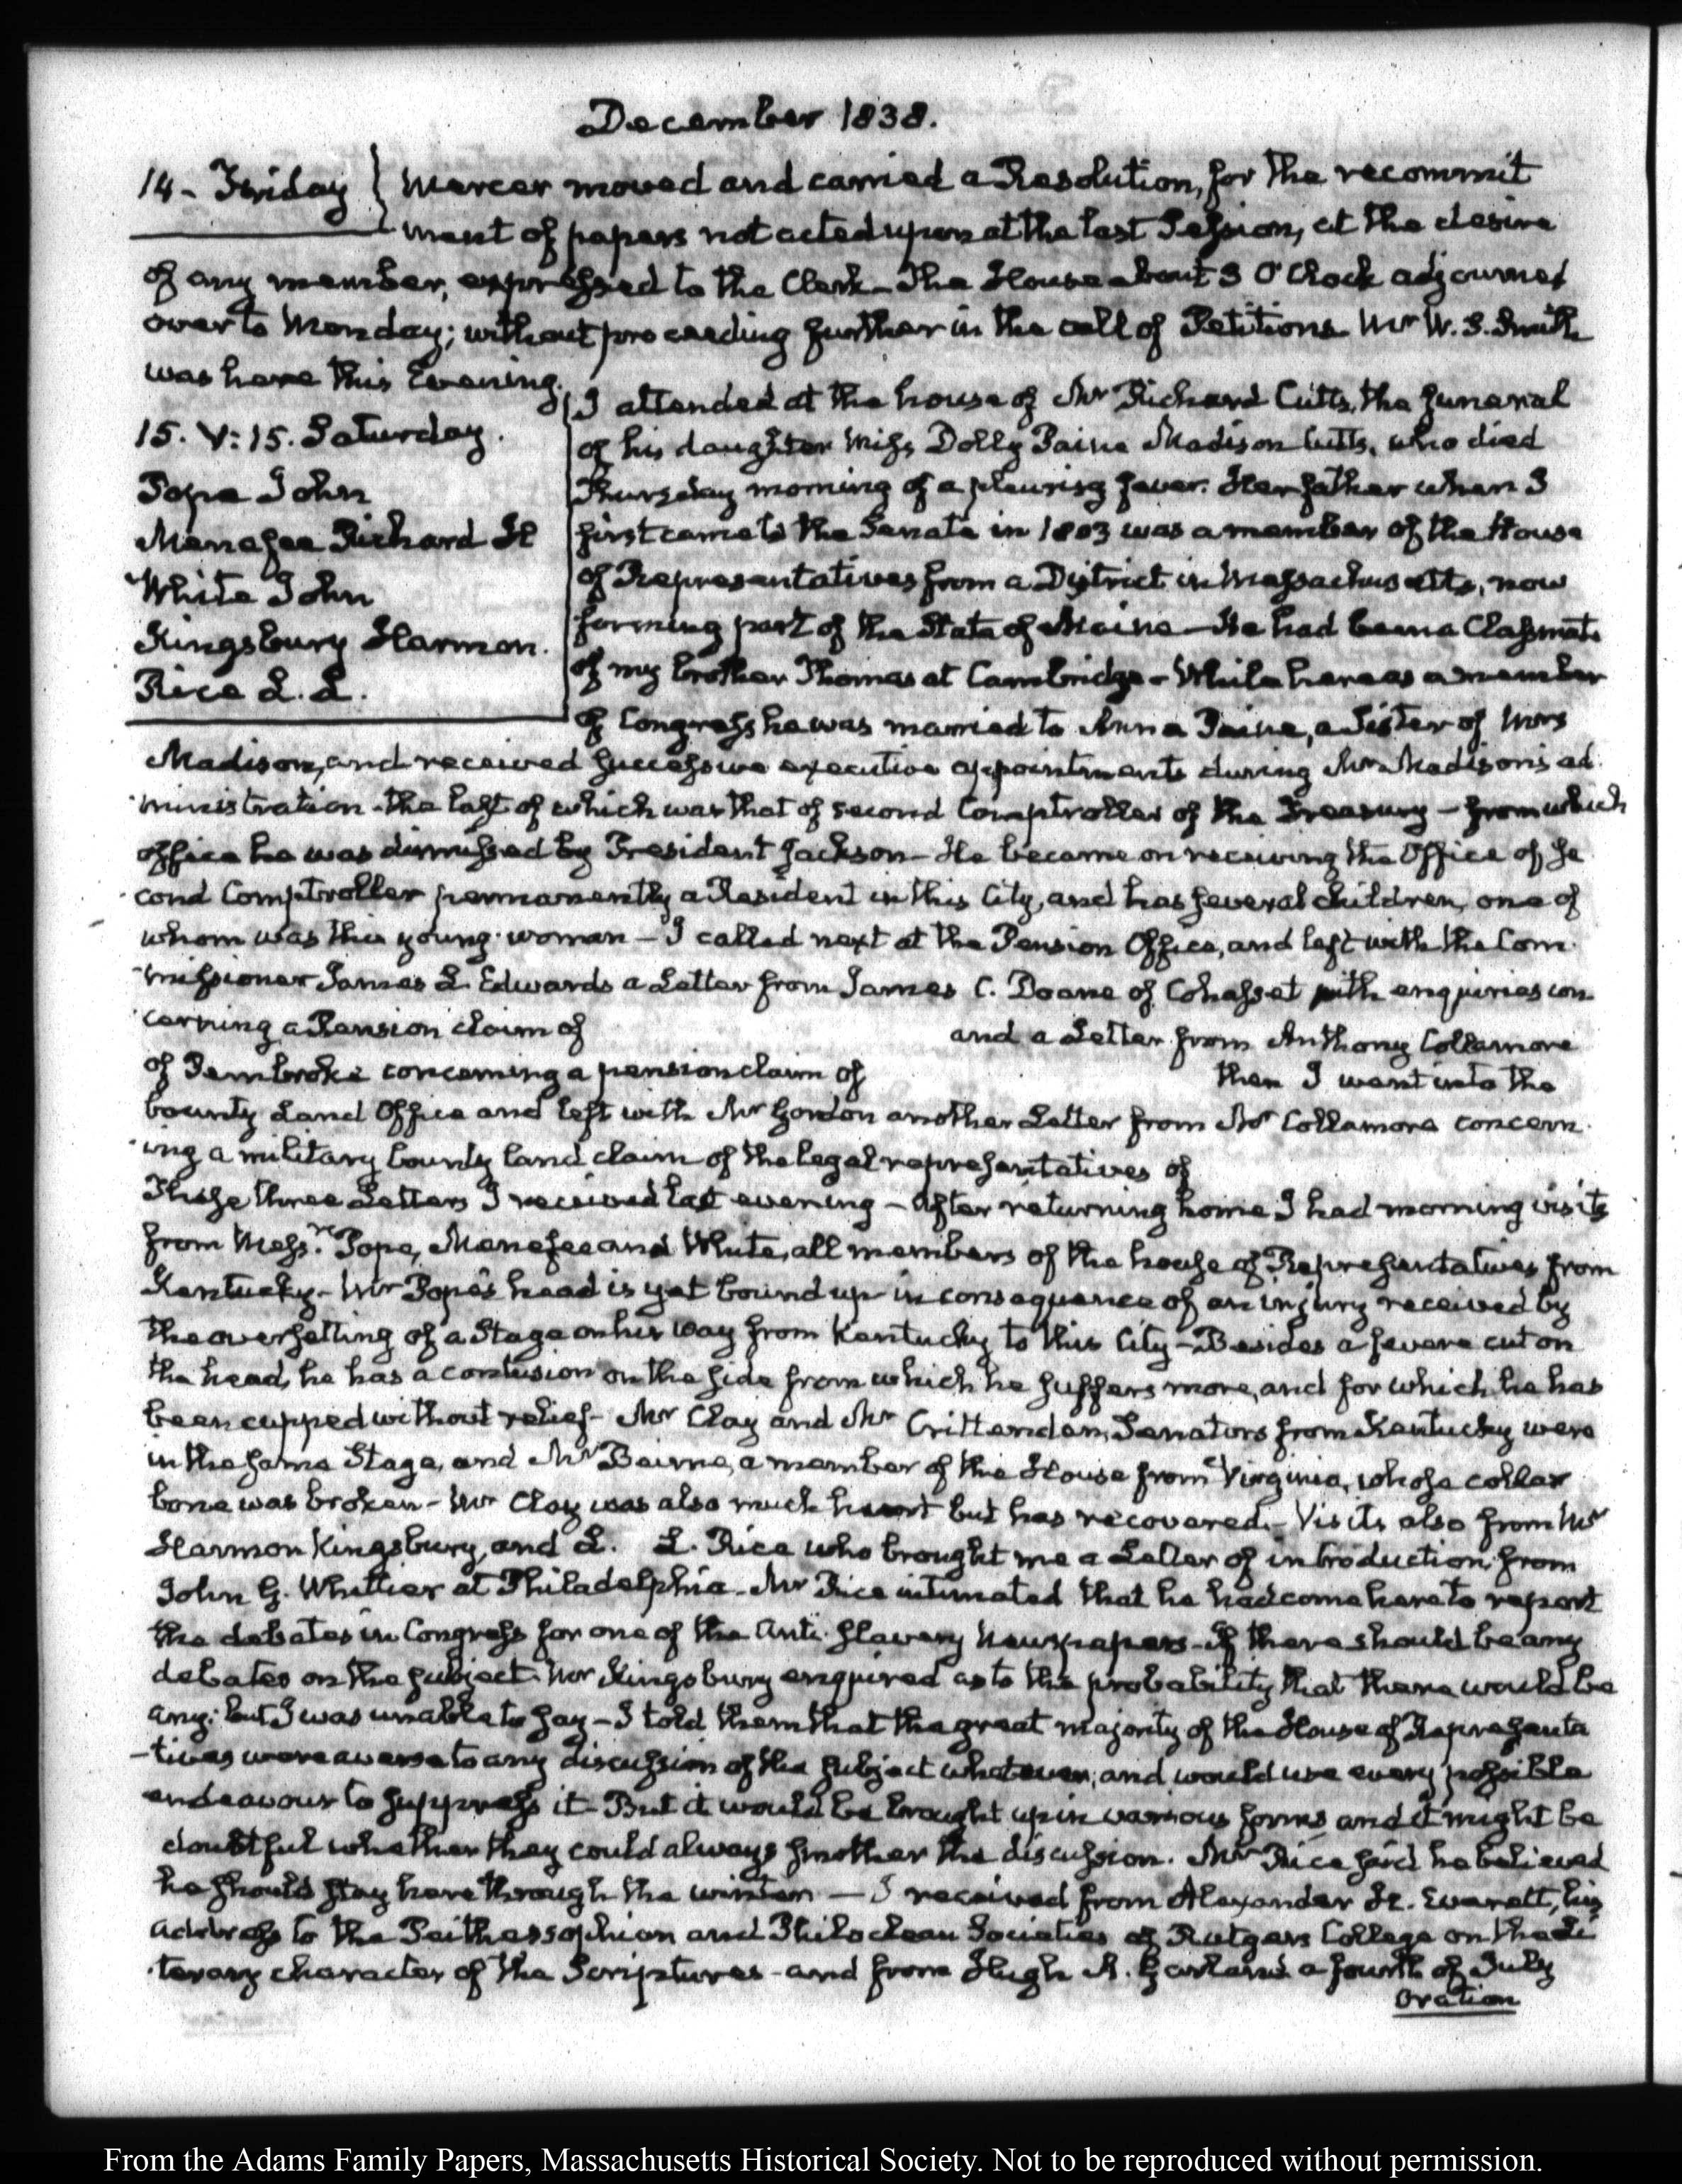 December 1838.
14 - Friday } Mercer moved and carried a Resolution, for the recommit
ment of papers not acted upon at the last Session, at the desire
of any member, expressed to the Clerk - The House about 3 O'Clock adjourned
over to Monday; without proceeding further in the call of Petitions Mr W. S. Smith
was here this Evening.
15. V:15. Saturday.
Pope John
Menefee Richard H
White John
Kingsbury Harmon.
Rice L. L.
I attended at the house of Mr Richard Cutts, the funeral
of his daughter Miss Dolly Paine Madison Cutts, who died
Thursday morning of a pleurisy fever. Her father when I
first came to the Senate in 1803 was a member of the House
of Representatives from a District in Massachusetts, now
forming part of the State of Maine - He had been a Classmate
of my brother Thomas at Cambridge - While here as a member
of Congress he was married to Anna Paine, a Sister of Mrs
Madison, and received successive executive appointments during Mr Madison's ad
ministration - the last of which was that of second Comptroller of the Treasury - from which
office he was dismissed by President Jackson - He became on receiving the Office of Se
cond Comptroller permanently a Resident in this City, and has several children, one of
whom was this young woman - I called next at the Pension Office, and left with the Com
missioner James L. Edwards a Letter from James C. Doane of Cohasset with enquiries con
cerning a Pension claim of and a Letter from Anthony Collamore
of Pembroke concerning a pension claim of then I went into the
bounty Land Office and left with Mr Gordon another Letter from Mr Collamore concern
ing a military bounty land claim of the legal representatives of
These three Letters I received last evening - After returning home I had morning visits
from Messrs Pope, Menefee and White, all members of the house of Representatives from
Kentucky - Mr Pope's head is yet bound up in consequence of an injury received by
the oversetting of a Stage on his way from Kentucky to this City - Besides a severe cut on
the head, he has a contusion on the side from which he suffers more, and for which he has
been cupped without relief - Mr Clay and Mr Crittenden, Senators from Kentucky were
in the same Stage, and Mr Beirne, a member of the House from Virginia, whose collar
bone was broken - Mr Clay was also much hurt but has recovered. - Visits also from Mr
Harmon Kingsbury, and L. L. Rice who brought me a Letter of introduction from
John G. Whittier at Philadelphia - Mr Rice intimated that he had come here to report
the debates in Congress for one of the Anti Slavery Newspapers - if there should be any
debates on the subject. Mr Kingsbury enquired as to the probability that there would be
any; but I was unable to say - I told them that the great majority of the House of Representa
-tives were averse to any discussion of the subject whatever, and would use every possible
endeavour to suppress it - But it would be brought up in various forms and it might be
doubtful whether they could always smother the discussion. Mr Rice said he believed
he should stay here through the winter - I received from Alexander H. Everett, his
address to the Peithessophian and Philoclean Societies of Rutgers College on the Li
terary character of the Scriptures - and from Hugh A. Garland a fourth of July
Oration
From the Adams Family Papers, Massachusetts Historical Society. Not to be reproduced without permission.